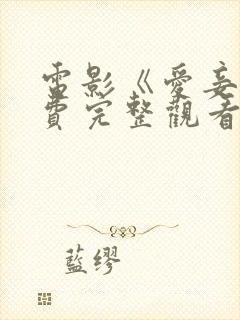 電影《愛妾
費完整觀看
藍缪